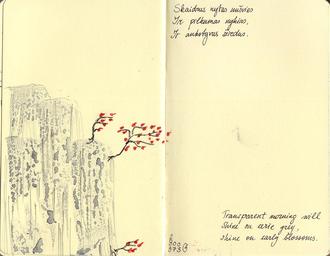 Skaidrus rytas nušvies
Ir pilkumas nykias,
Ir ankstyvus žiedus.
Transparent morning will
Shine on eerie grey,
Shine on early blossoms.